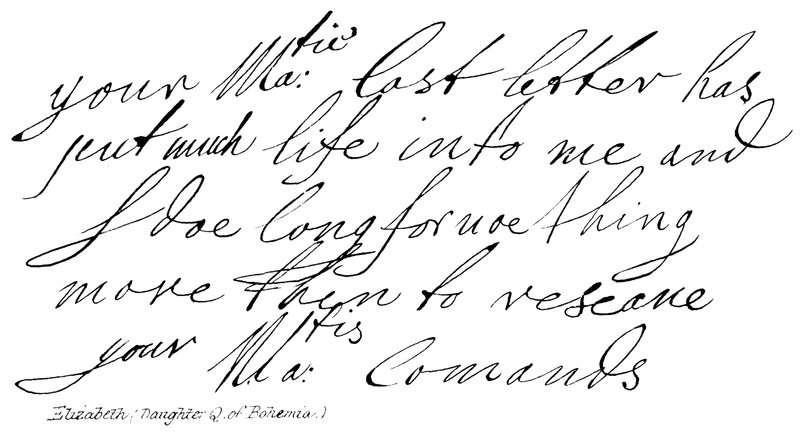 your Ma:tie last letter has
put much life into me and
I doe long for noe thing
more then to reseaue
your Ma:tis Comands
Elizabeth (Daughter Q. of Bohemia.)